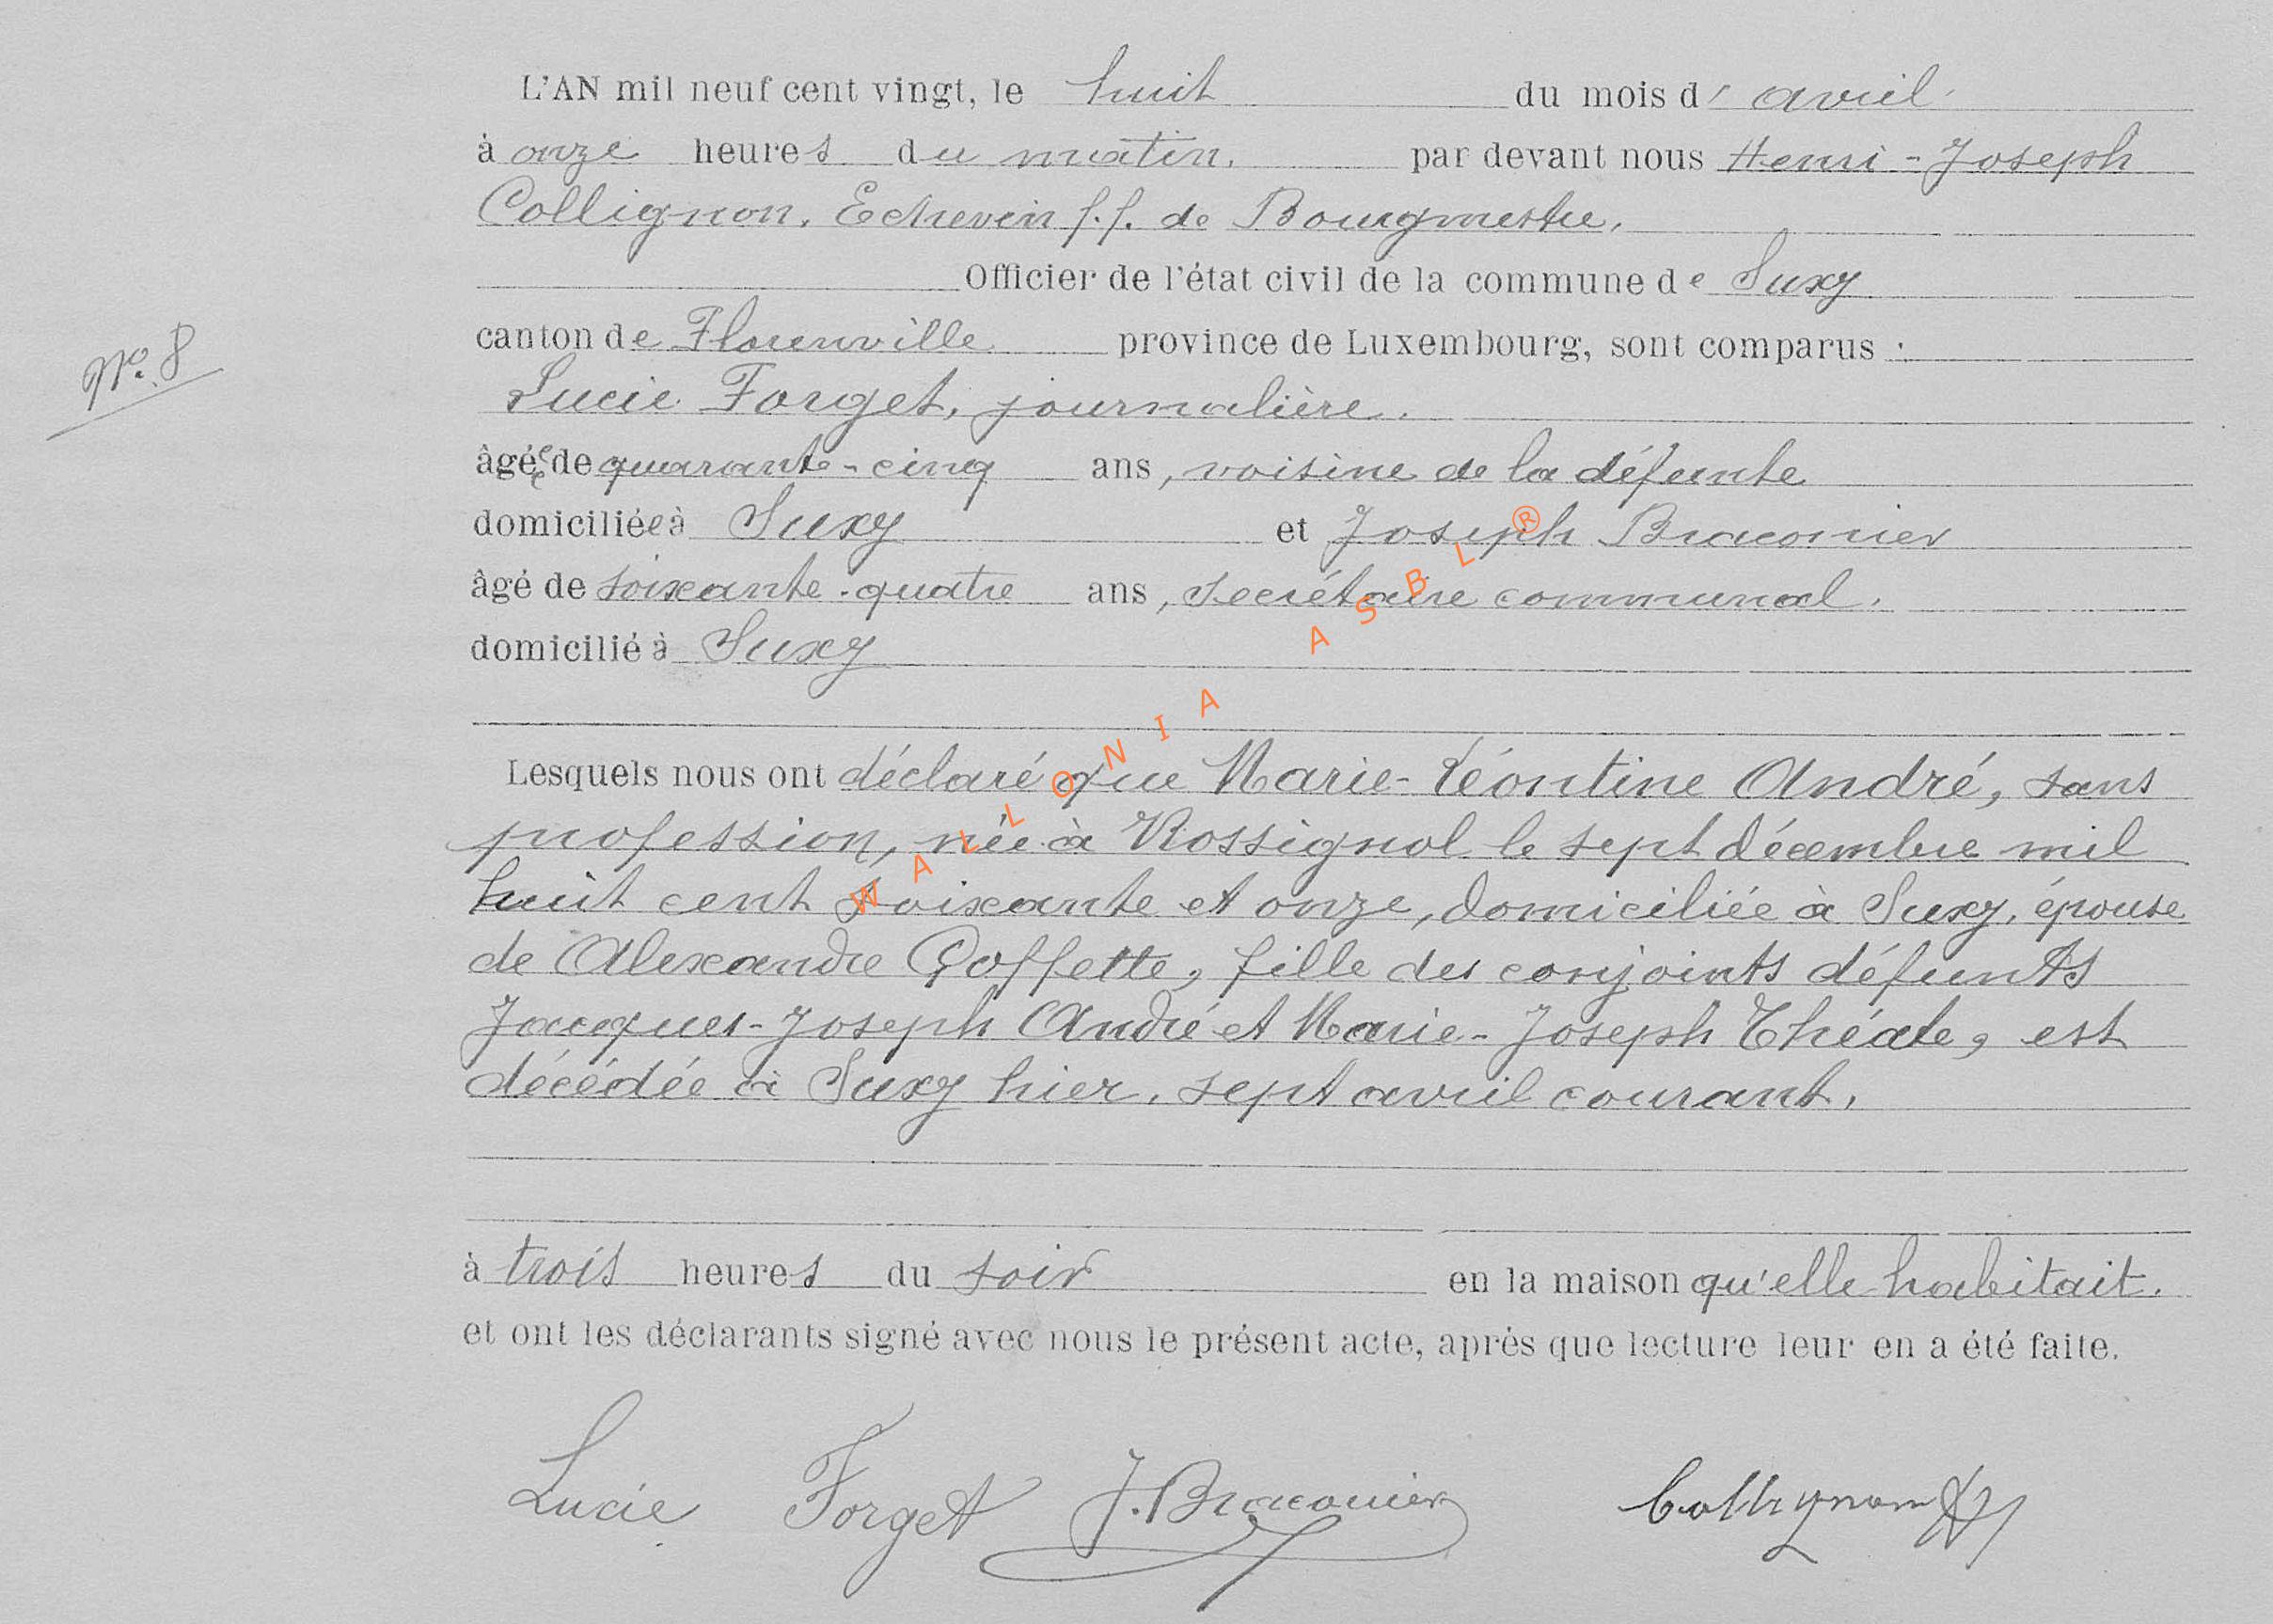 L'AN mil neuf cent vingt, le huit du mois d' avril
à onze heures du matin. par devant nous Henri-Joseph
Collignon, Echevin f.f. de Bourgmestre,
Officier de l'état civil de la commune de Suxy
N° 8
canton de Florenville province de Luxembourg, sont comparus :
Lucie Forget, journalière.
âgée de quarante-cinq ans, voisine de la défunte
domiciliée à Suxy et Joseph Braconier
âgé de soixante-quatre ans, secrétaire communal.
domicilié à Suxy
WALLONIA ASBL ®
Lesquels nous ont déclaré que Marie-Léontine André, sans
profession, née à Rossignol le sept décembre mil
huit cent soixante et onze, domiciliée à Suxy, épouse
de Alexandre Goffette, fille des conjoints défunts
Jacques-Joseph André et Marie-Joseph Théate, est
décédée à Suxy hier, sept avril courant,
à trois heures du soir en la maison qu'elle habitait.
et ont les déclarants signé avec nous le présent acte, après que lecture leur en a été faite.
Lucie Forget J. Braconier Collignon HJ